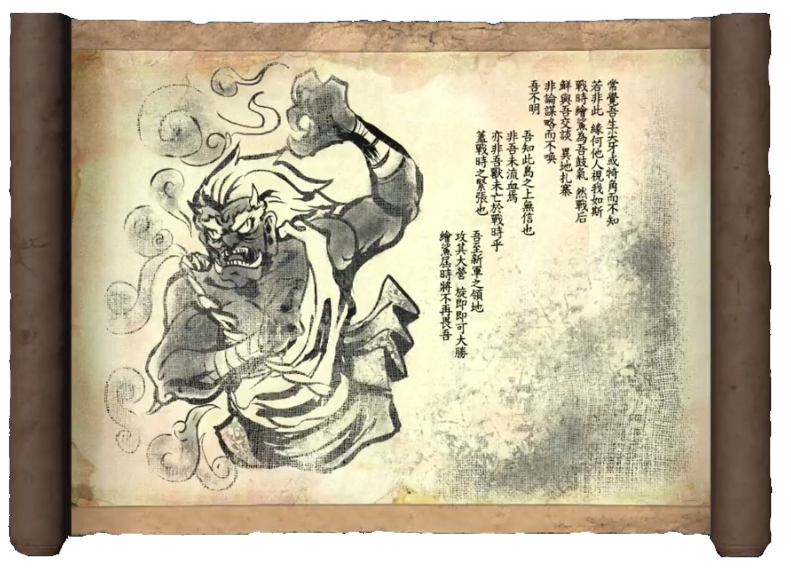 常覺吾生尖牙或犄角而不知
若非此 緣何他人視我如斯
戰時繪鯊為吾鼓氣 然戰后
鮮與吾交談 異地扎寨
非論謀略而不喚
吾不明
吾知此島之上無信也
非吾未流血焉
亦非吾獸未亡於戰時乎
蓋戰時之緊張也
吾至新軍之領地
攻其大營 旋即即可大勝
繪鯊屆時將不再畏吾